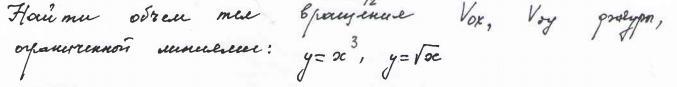 Найти объем тел вращения Vox, Voy фигуры,
ограниченной линиями: y=x³, y=√x